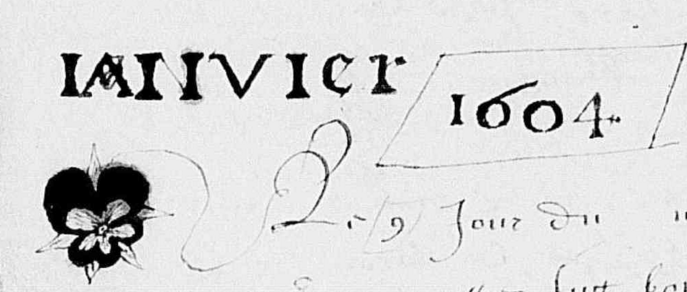 IANVIer 1604
Le 9 Jour du